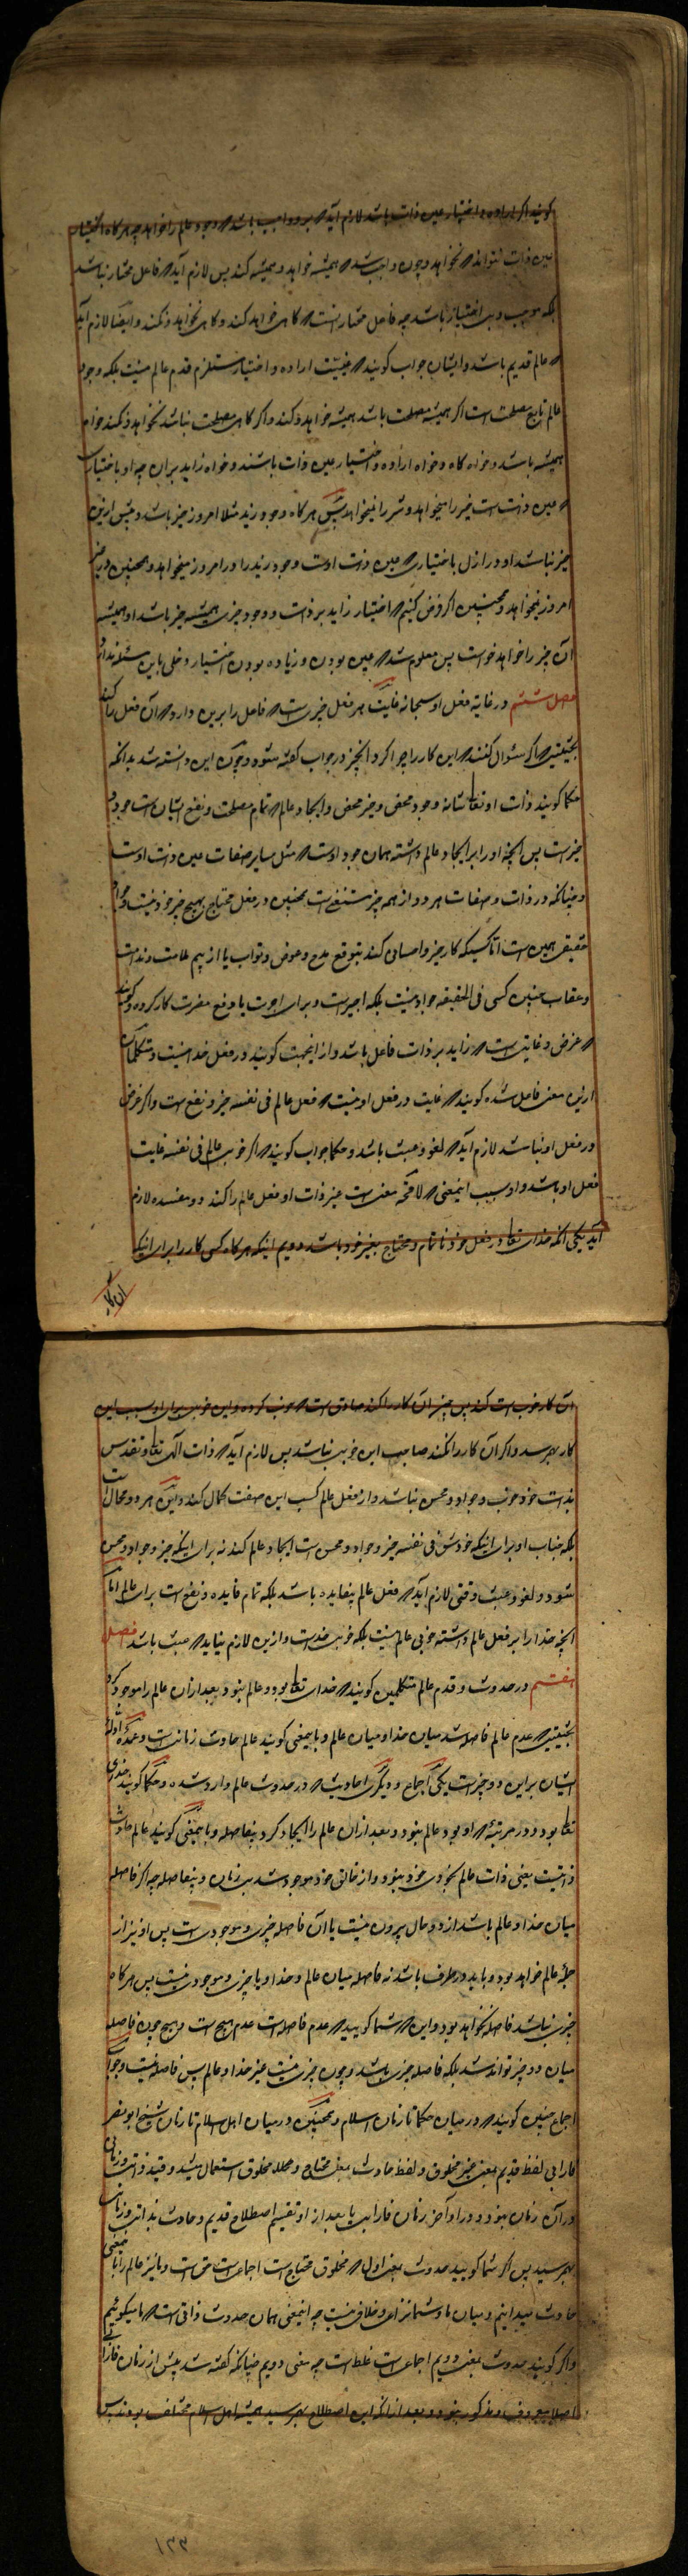 کویند اکر اراده و اختیار عین ذات باشد لازم آید که برو واجب باشد که وجود عالم را خواهد چه هرکاه اختیار
عین ذات نتواند که نخواهد و چون واجب شد که همیشه خواهد و همیشه کند پس لازم آید که فاعل مختار نباشد
بلکه موجب و بی اختیار باشد چه فاعل مختار آنست که کاهی خواهد کند و کاهی نخواهد و نکند و ایضا لازم آید
که عالم قدیم باشد و ایشان جواب کویند که عینیت اراده و اختیار مستلزم قدم عالم نیست بلکه وجود
عالم تابع مصلحت است اکر همیشه مصلحت باشد همیشه خواهد و کند و اکر کاهی مصلحت نباشد نخواهد و نکند خواه
همیشه باشد و خواه کاه و خواه اراده و اختیار عین ذات باشند و خواه زاید بران چه او باختیاری
که عین ذات است خیر را میخواهد و شر را نمیخواهد پس هرکاه وجود زید مثلا امروز خیر باشد و پیش ازین
خیر نباشد او در ازل باختیاری که عین ذات اوست وجود زید را در امروز میخواهد و همچنین در غیر
امروز نمیخواهد و همچنین اکر فرض کنیم که اختیار زاید بر ذات و وجود چیزی همیشه خیر باشد او همیشه
آن چیز را خواهد خواست پس معلوم شد که عین بودن و زیاده بودن اختیار دخلی باین مسئله ندارد
فصل ششم در غایة فعل او سبحانه غایت هر فعل چیزیست که فاعل را برین دارد که آن فعل را کند
بحیثیتی که اکر سئوال کنند که این کار را چرا کرد آنچیز در جواب کفته شود و چون این دانسته شد بدانکه
حکما کویند ذات او تعالی شانه وجود محض و خیر محض و ایجاد عالم که تمام مصلحت و نفع ایشان است جود و
خیر است پس آنچه او را بر ایجاد عالم داشته همان جود اوست که مثل سایر صفات عین ذات اوست
و چنانکه در ذات و صفات هر دو از همه چیز مستغنی است همچنین در فعل محتاج بهیچ چیز خود نیست و جواد
حقیقی همین است اما کسیکه کار خیر و احسانی کند بتوقع مدح و عوض و ثواب یا از بیم ملامت و ندامت
و عقاب چنین کسی فی الحقیقه جواد نیست بلکه اجیر است و برای اجرت یا دفع مضرت کار کرده و کویند
که غرض و غایتی است که زاید بر ذات فاعل باشد و از اینجهت کویند در فعل خدا نیست و متکلمان
ازین معنی غافل شده کویند که غایت در فعل او نیست که فعل عالم فی نفسه خیر و نفع است و اکر غرض
در فعل او نباشد لازم آید که لغو و عبث باشد و حکما جواب کویند که اکر خوبی عالم فی نفسه غایت
فعل او باشد و او بسبب اینمعنی که لاحقه معنی است غیر ذات او فعل عالم را کند دو مفسده لازم
آید یکی آنکه خدای تعالی در فعل خود ناتمام و محتاج بغیر خود باشد دویم اینکه هرکاه کسی کار را برای اینکه
آن کار
آن کار خوب است کند پس چون آن کار را کند صادق است که خوب کرده و این خوبی برای او بسبب این
کار بهرسد و اکر آن کار را نکند صاحب این خوبی نباشد پس لازم آید که ذات الهی تعالی و تقدس
بذات خود خوب و جواد و محسن نباشد و از فعل عالم کسب این صفت کمال کند و این هر دو محال است
بلکه جناب او برای اینکه خودش فی نفسه خیر و جواد و محسن است ایجاد عالم کند نه برای اینکه خیر و جواد و محسن
شود و لغو و عبث وقتی لازم آید که فعل عالم بیفایده باشد بلکه تمام فایده و نفع است برای عالم اما
آنچه خدا را بر فعل عالم داشته خوبی عالم نیست بلکه خوبی خداست و ازین لازم نیاید که عبث باشد فصل
هفتم در حدوث و قدم عالم متکلمین کویند که خدای تعالی بود و عالم نبود و بعد ازان عالم را موجود کرد
بحیثیتی که عدم عالم فاصله شد میان خدا و میان عالم و باینمعنی کویند عالم حادث زمانیست و عمدۀ ادلۀ
ایشان براین دو چیز است یکی اجماع و دیکری احادیث که در حدوث عالم وارد شده و حکما کویند خدای
تعالی بود و در مرتبۀ که او بود عالم نبود و بعد ازان عالم را ایجاد کرد بیفاصله و باینمعنی کویند عالم حادث
ذاتیست یعنی ذات عالم بخودی خود نبود و از خالق خود موجود شد بی زمان و بیفاصله چه اکر فاصله
میان خدا و عالم باشد از دو حال بیرون نیست یا آن فاصله چیزی و موجودی است پس او نیز از
جملۀ عالم خواهد بود و باید در طرف باشد نه فاصله میان عالم و خدا و یا چیزی و موجودی نیست پس هرکاه
چیزی نباشد فاصله نخواهد بود و این که شما کویید که عدم فاصله است عدم هیچ است و هیچ چون فاصله
میان دو چیز تواند شد بلکه فاصله چیزی باشد و چون چیزی نیست غیر خدا و عالم پس فاصله نیست و جواب
اجماع چنین کویند که در میان حکما تا زمان اسلام و همچنین در میان اهل اسلام تا زمان شیخ ابو نصر
فارابی لفظ قدیم بمعنی غیر مخلوق و لفظ حادث بمعنی محتاج و محلد مخلوق استعمال میشد و قید ذاتی و زمانی
دران زمان نبود و در اواخر زمان فارابی یا بعد از او تقسیم اصطلاح قدیم و حادث بذاتی و زمانی
بهرسید پس اکر شما کویید حدوث بمعنی اول که مخلوق محتاج است اجماعی است حق است و ما نیز عالم را باینمعنی
حادث میدانیم و میان ما و شما نزاعی و خلافی نیست چه اینمعنی همان حدوث ذاتی است که ما میکوئیم
و اکر کویند حدوث بمعنی دویم اجماعی است غلط است چه معنی دویم چنانکه کفته شد پیش از زمان فارابی
اصلا معروف و مذکور نبود و بعد از آنکه این اصطلاح بهرسید همیشه اهل اسلام مختلف بودند پس
۱۳۳